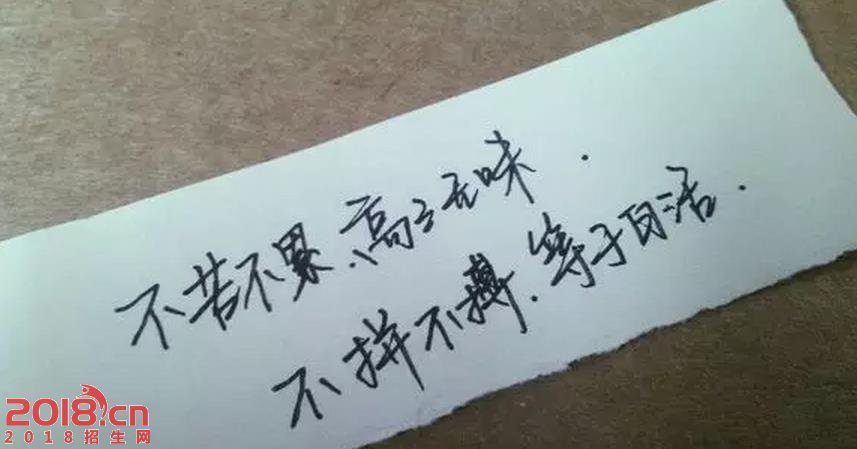 不苦不累.高三无味.
不拼不搏.等于白活.
2018.cn
2018招生网